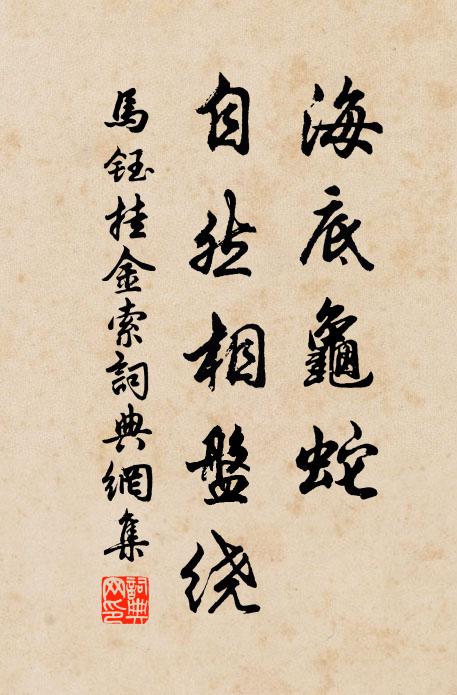 海底龜蛇
自然相盤繞
馬鈺挂金索詞典網集
詞典網印